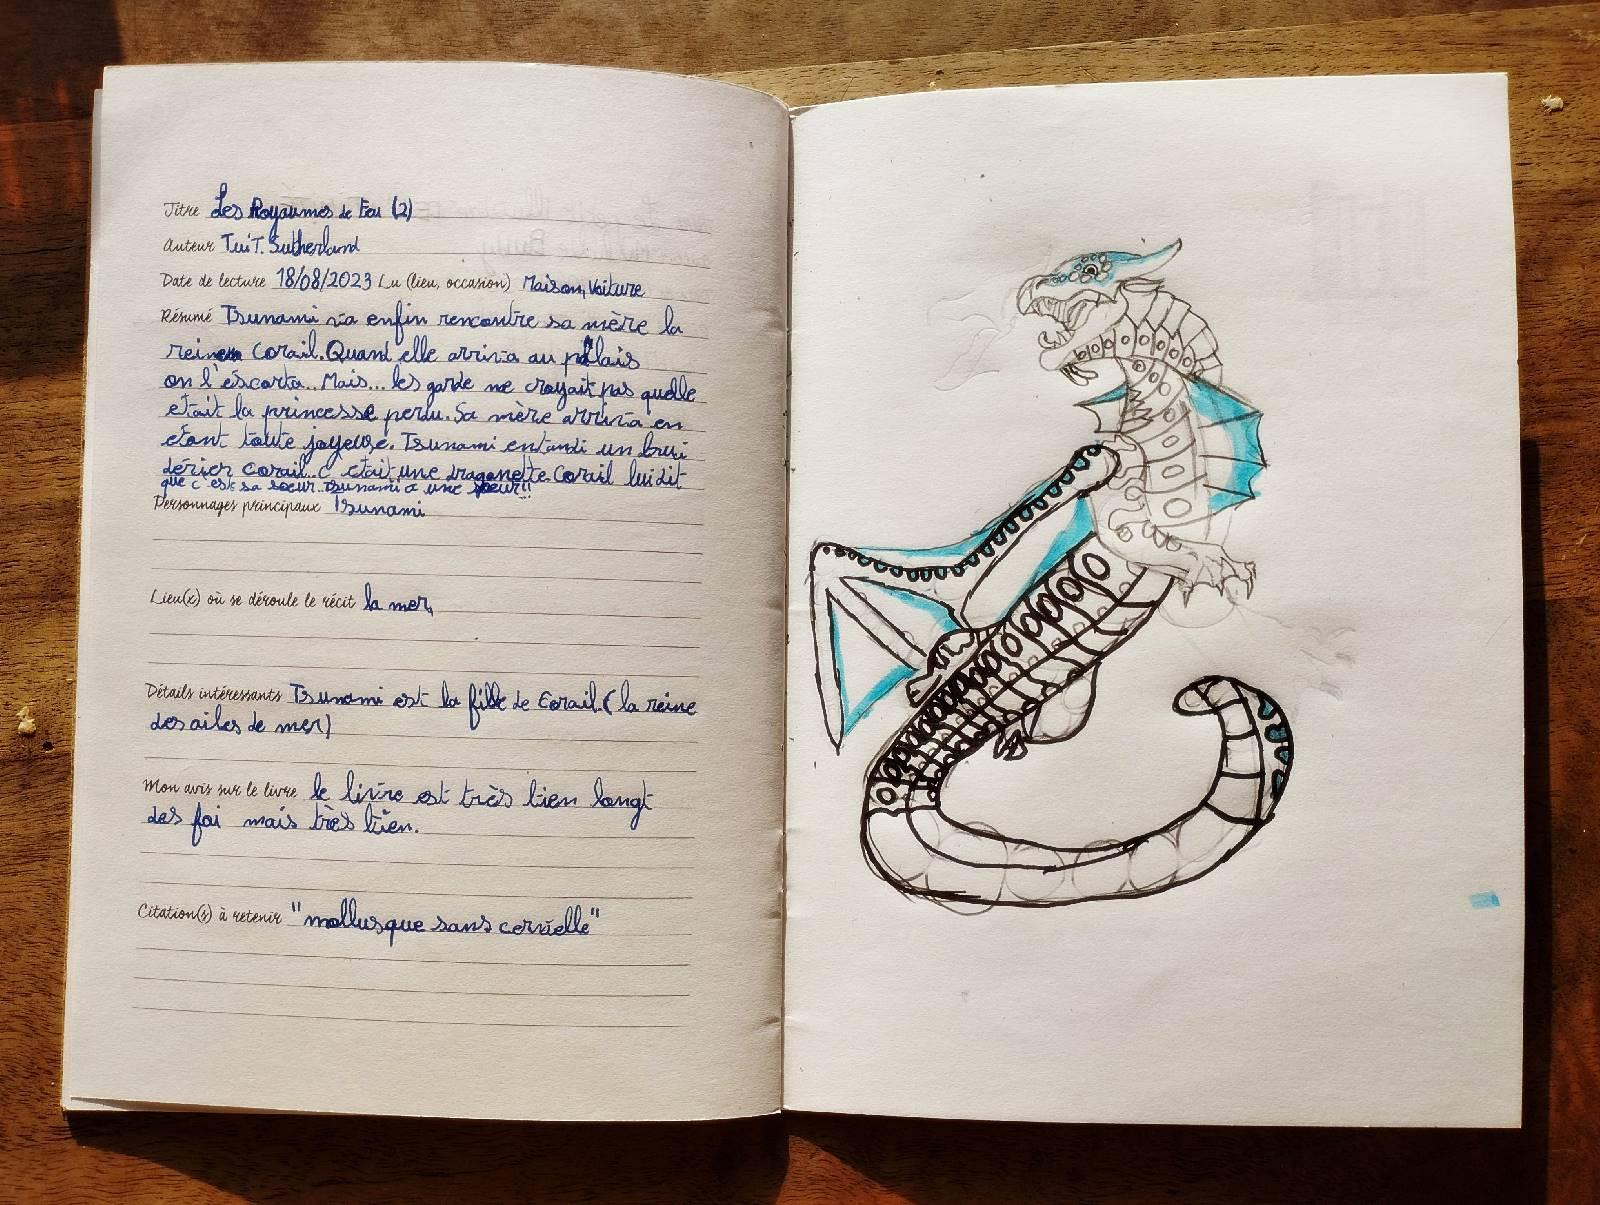 Titre Les Royaumes de Feu (2)
Auteur Tui T. Sutherland
Date de lecture 18/08/2023 Lu (lieu, occasion) Maison, Voiture
Résumé Tsunami va enfin rencontre sa mère la
reine Corail. Quand elle arriva au palais
on l'éscorta... Mais... les garde ne croyait pas quelle
etait la princesse perdu. Sa mère arriva en
etant toute joyeuse. Tsunami entandi un brui
dérier corail.. C etait une dragonette. Corail lui dit
que c'est sa soeur.. Tsunami a une soeur!!
Personnages principaux Tsunami
Lieu(x) où se déroule le récit la mer,
Détails intéressants Tsunami est la fille de Corail. (la reine
des ailes de mer)
Mon avis sur le livre le livre est très bien longt
des foi mais très bien.
Citation(s) à retenir "mollusque sans cervielle"